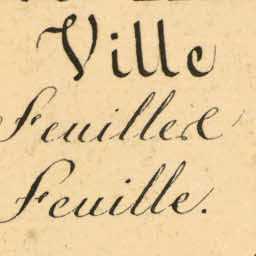 Ville
Feuille
Feuille.